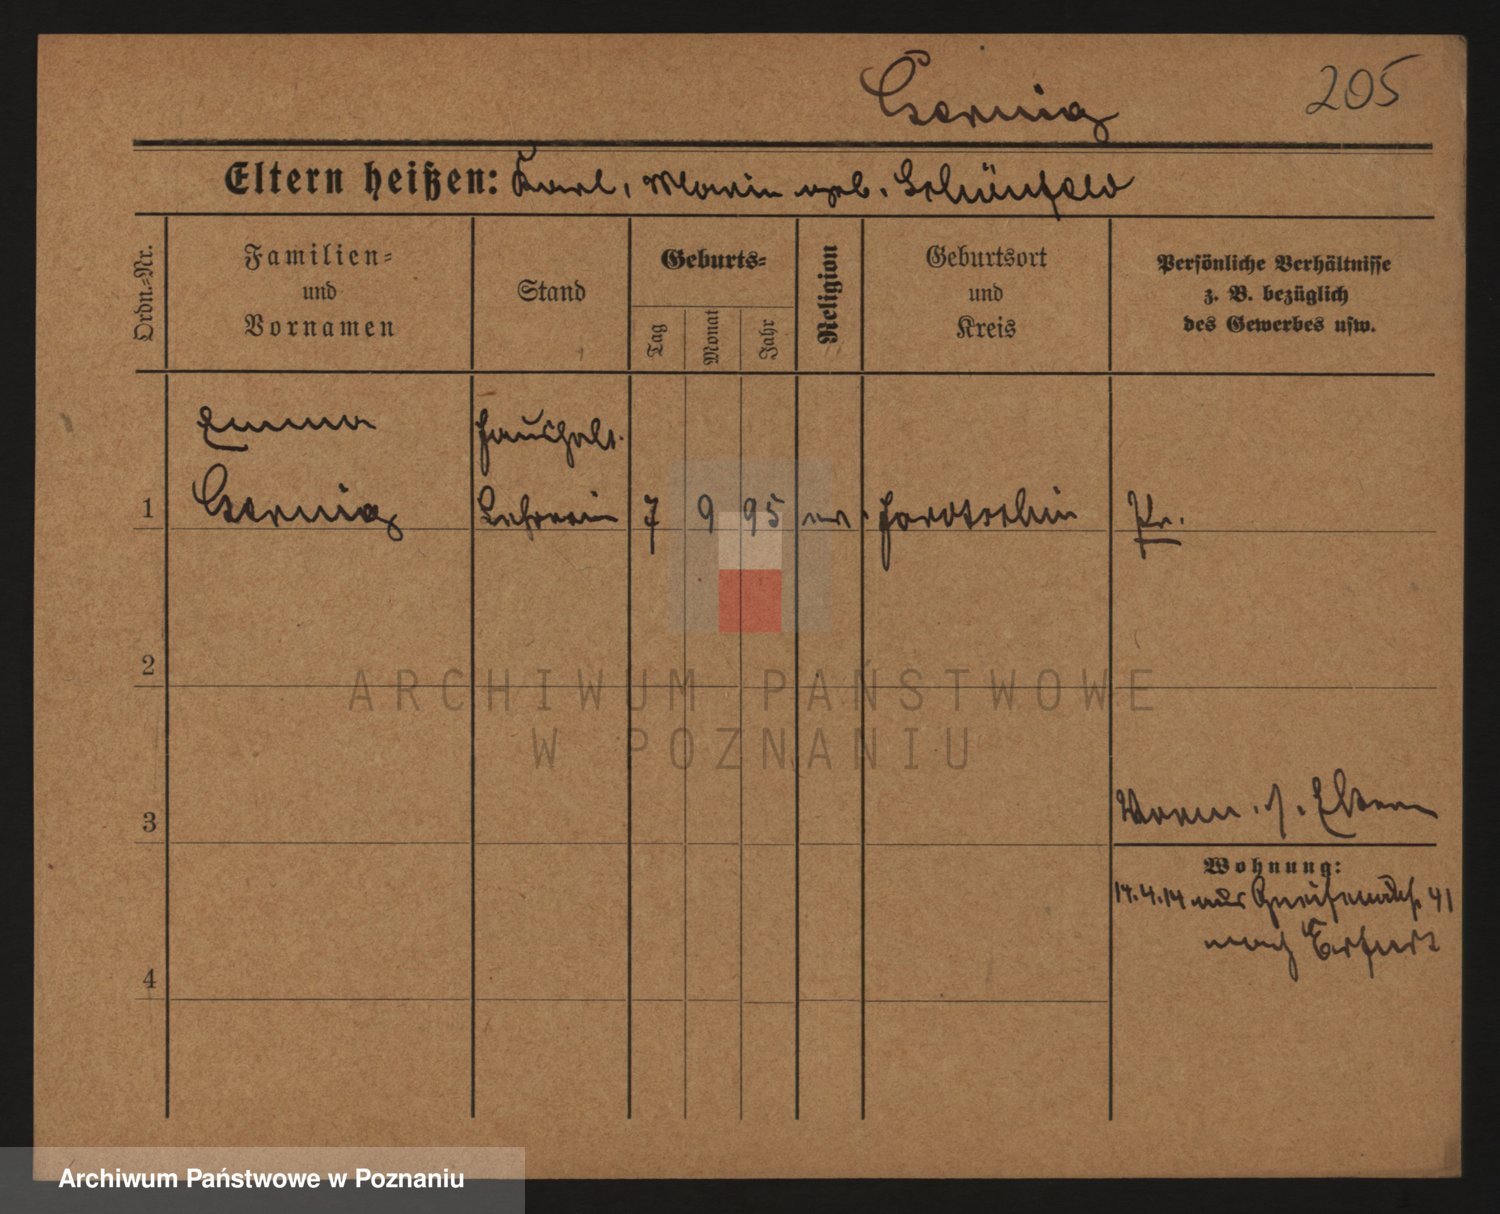 Czernig
205
Eltern heißen: Karl, Marie geb. Schünfeld
Ordn.-Nr.
Familien-
und
Vornamen
Stand
Geburts-
Tag
Monat
Jahr
Religion
Geburtsort
und
Kreis
Persönliche Verhältnisse
z. B. bezüglich
des Gewerbes usw.
Emma
Haushalt.
1
Lehrerin
7
9
95
ev.
Jarotschin
Pr.
2
3
s. Eltern
Wohnung:
aus
41
nach Erfurt
4
ARCHIWUM PAŃSTWOWE
W POZNANIU
Archiwum Państwowe w Poznaniu